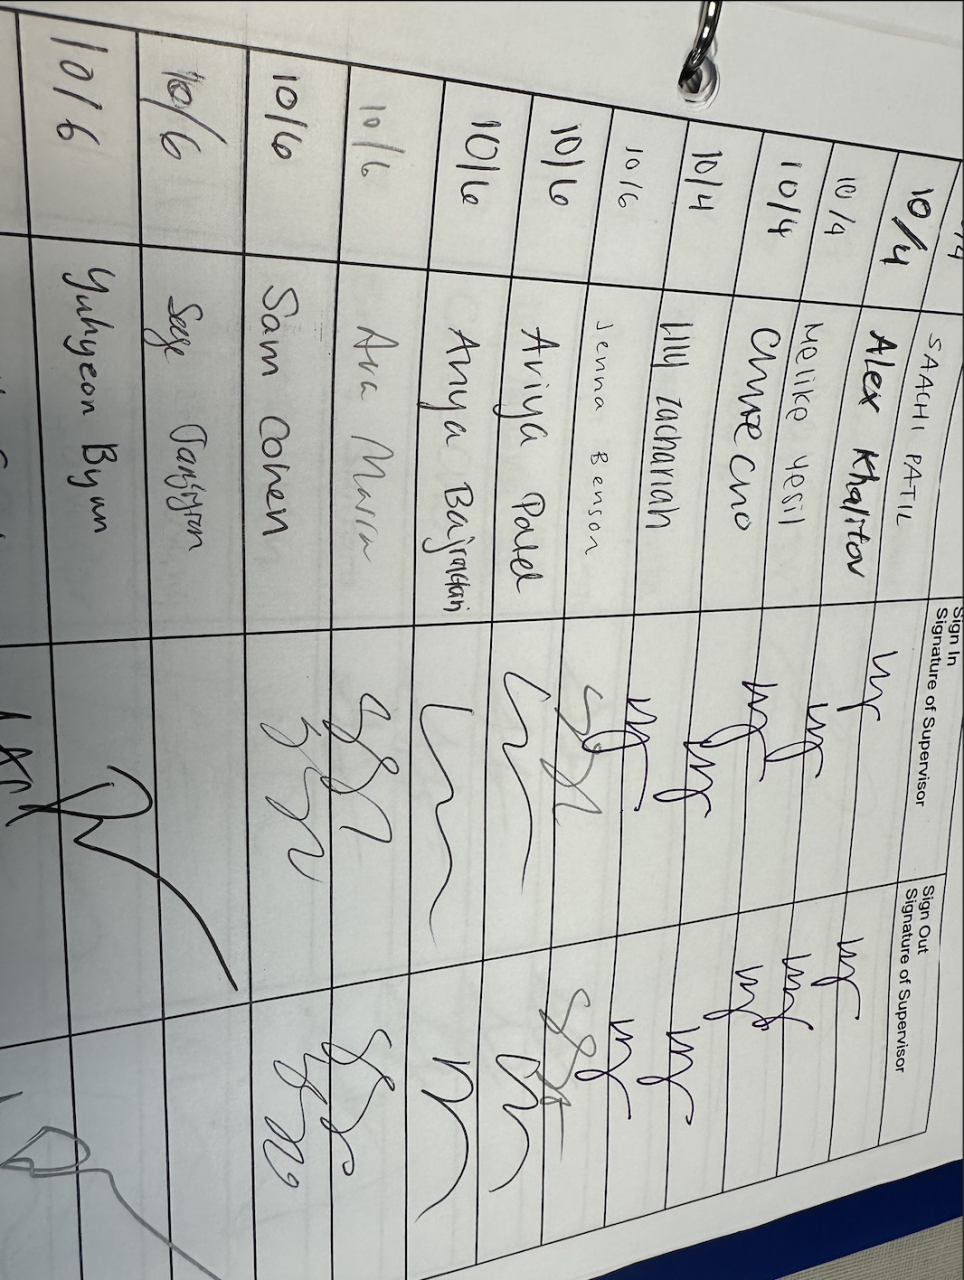 Sign In
Signature of Supervisor
Sign Out
Signature of Supervisor
SAACHI PATIL
10/4 Alex Khalitov
10/4 Melike Yesil
10/4 Chloe Cho
10/4 Lily Zachariah
10/6 Jenna Benson
10/6 Ariya Patel
10/6 Anya Bajracharya
10/6 Ava
10/6 Sam Cohen
10/6 Sage
10/6 Yuhyeon Byun